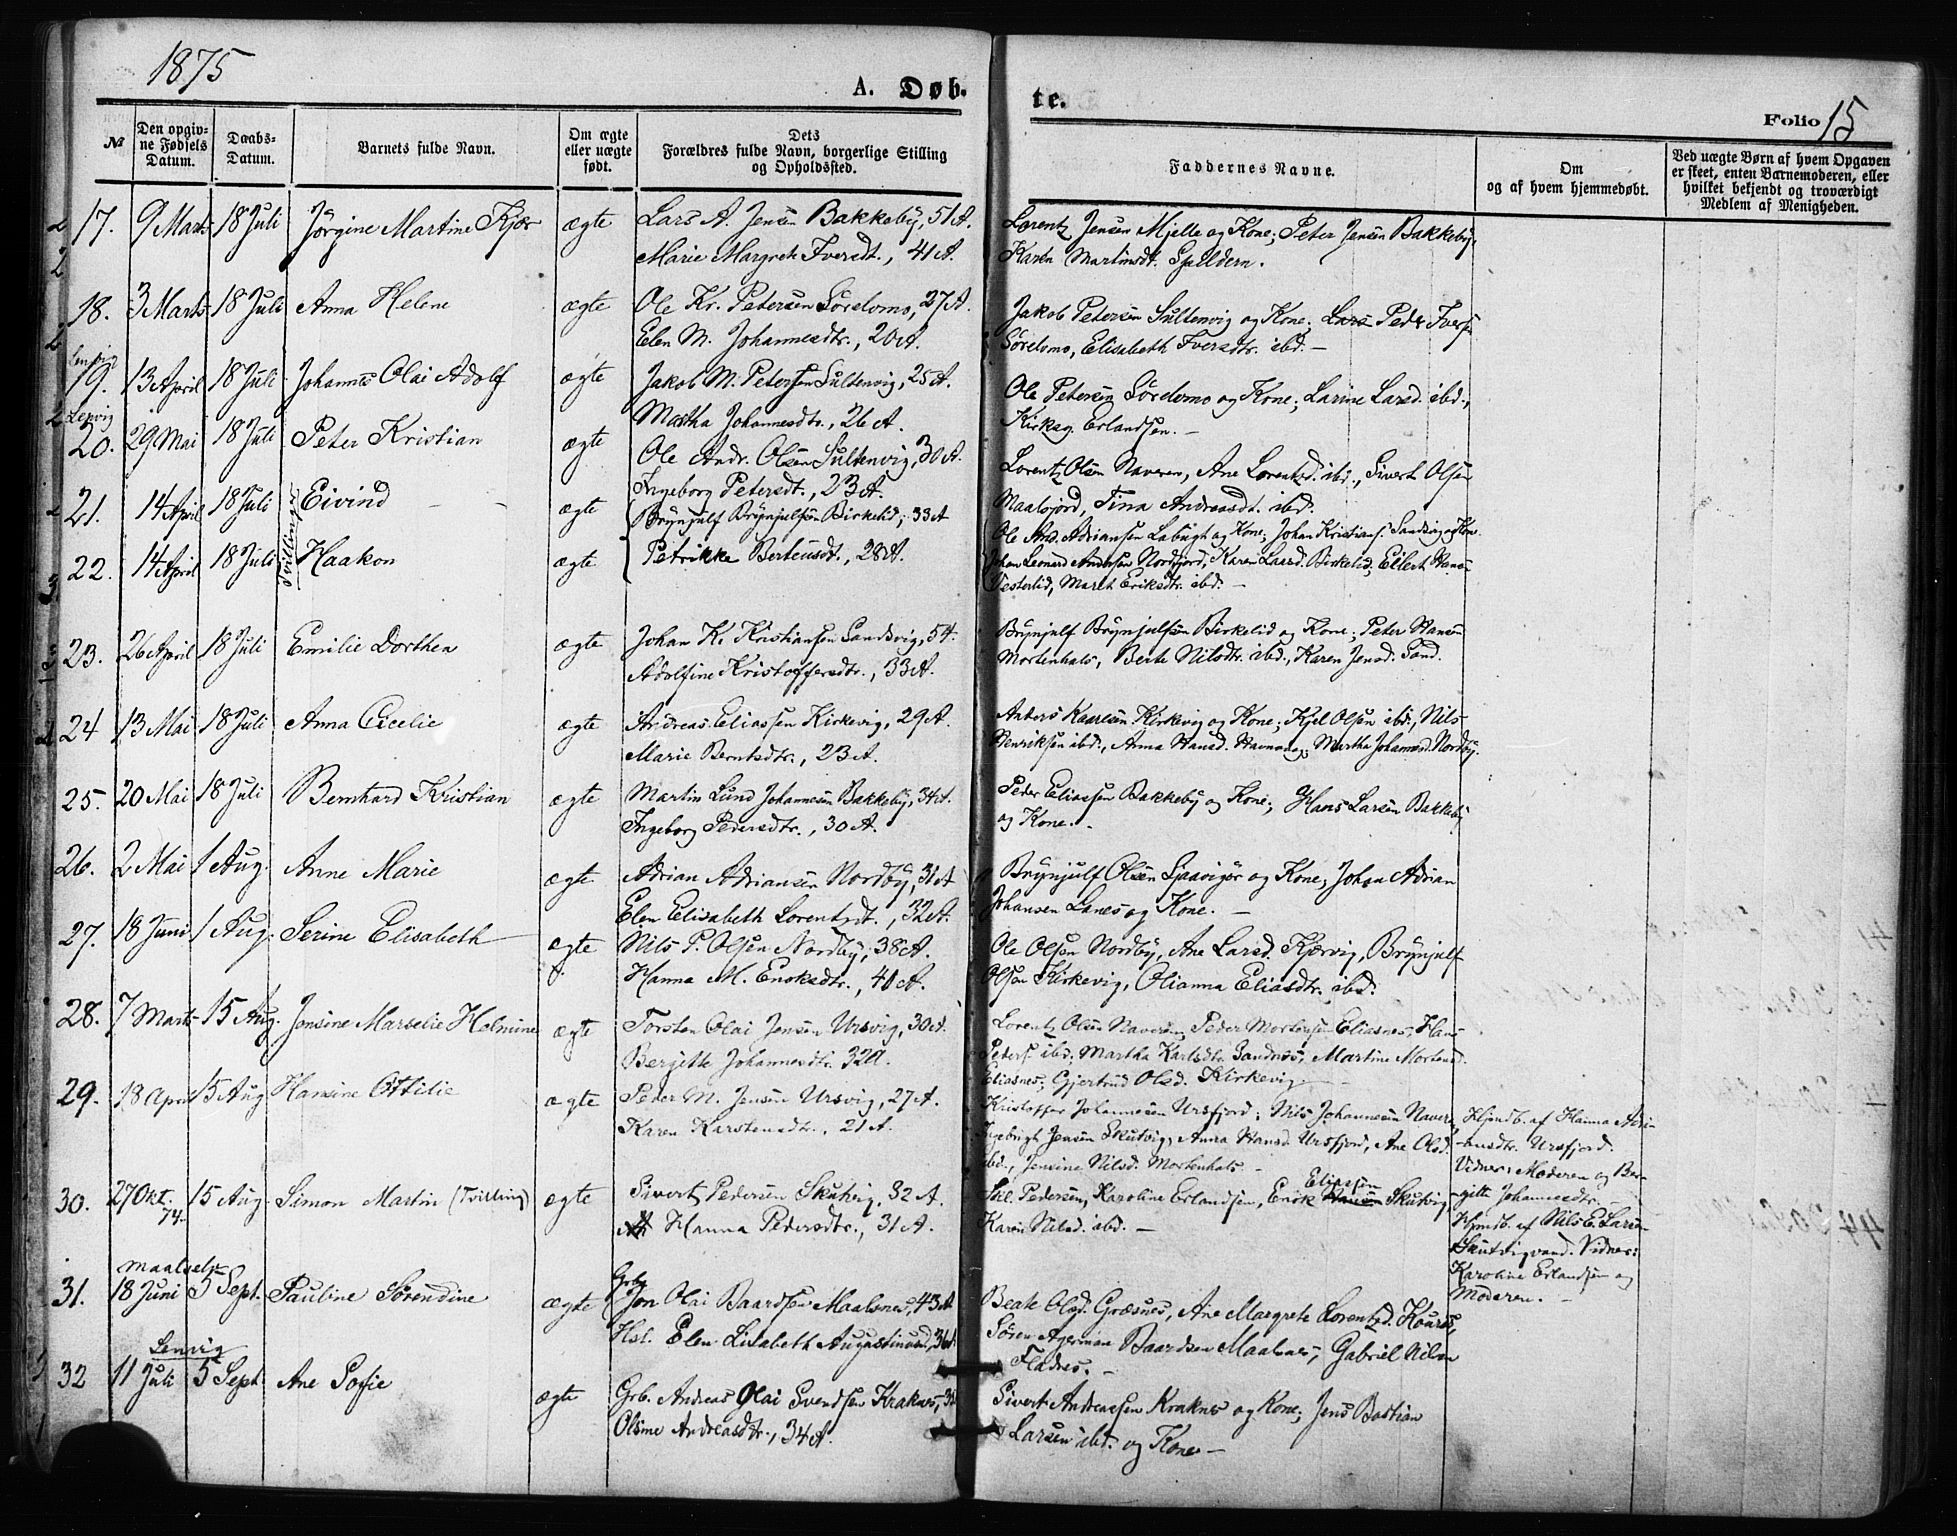 1875
A. Døb.
te.
Folio 15
№
Den opgiv-
ne Fødsels
Datum.
Daabs-
Datum.
Barnets fulde Navn.
Om ægte
eller uægte
født.
Dets
Forældres fulde Navn, borgerlige Stilling
og Opholdssted.
Faddernes Navne.
Om
og af hvem hjemmedøbt.
Ved uægte Børn af hvem Opgaven
er skeet, enten Barnemoderen, eller
hvilket bekjendt og troværdigt
Medlem af Menigheden.
17. 9 Marts 18 Juli Jörgine Martine Kjær ægte Lars A. Jensen Bakkeby, 51 A.
Marie Margrete Iversdt., 41 A.
Lorentz Jensen Mjelle og Kone; Peter Jensen Bakkeby,
Karen Martinsdt.
18. 3 Marts 18 Juli Anna Helene ægte Ole Kr. Petersen Sörelvmo, 27 A.
Elen M. Johannesdtr., 20 A.
Jakob Petersen Sultenvig og Kone, Peder Iversen
Sörelvmo, Elisabeth Iversdtr. ibd. —
Lenvig
19. 13 April 18 Juli Johannes Olai Adolf ægte Jakob M. Petersen Sultenvig, 25 A.
Martha Johannesdtr., 26 A.
Ole Petersen Sörelvmo og Kone; Larine Larsd. ibd.,
Kirksg. Erlandsen. —
Lenvig
20. 29 Mai 18 Juli Peter Kristian ægte Ole Andr. Olsen Sultenvig, 30 A.
Ingeborg Petersdt., 23 A.
Lorentz Olsen Naveren, Ane Lorentzd. ibd., Sivert Olsen
Maalsjord, Tina Andreasdt. ibd.
21. 14 April 18 Juli Eivind ægte Brynjulf Brynjulfsen Birkelid, 33 A
Tvillinger
22. 14 April 18 Juli Haakon ægte Petrikke Berteusdt., 28 A.
Ole And. Adriansen Labugt og Kone; Johan Kristians. Sandvig og Kone
Johan Leonard Andersen Nordfjord, Karen Larsd. Birkelid, Eilert Hans-
Vesterlid, Maret Eriksdtr. ibd. —
23. 26 April 18 Juli Emilie Dorthea ægte Johan K. Kristiansen Sandsvig, 54.
Adolfine Kristoffersdtr., 33 A.
Brynjulf Brynjulfsen Birkelid og Kone; Peter Hansen
Mortenhals, Berte Nilsdtr. ibd., Karen Jensd. Sand.
24 13 Mai 18 Juli Anna Cicelie ægte Andreas Eliassen Kirkevig, 29 A.
Marie Berntsdtr., 23 A.
Anders Kaarlsen Kirkevig og Kone; Kjel Olsen ibd., Nils
Henriksen ibd., Anna Hansd. Martha Johannesd. Nordby.
25. 20 Mai 18 Juli Bernhard Kristian ægte Martin Lund Johannesen Bakkeby, 34 A.
Ingeborg Pedersdtr., 30 A.
Peder Eliassen Bakkeby og Kone; Hans Larsen Bakkeby
og Kone. -
26. 2 Mai 1 Aug. Anne Marie ægte Adrian Adriansen Nordby, 31 A
Elen Elisabeth Lorentzdt., 32 A.
Brynjulf Olsen og Kone; Johan Adrian
Johansen Lanes og Kone. —
27. 18 Juni 1 Aug. Serine Elisabeth ægte Nils P. Olsen Nordby, 38 A.
Hanna M. Enoksdtr., 40 A.
Ole Olsen Nordby, Ane Larsd. Kjærvig, Brynjulf
Olsen Kirkevig, Olianna Eliasdtr. ibd.
28. 7 Marts 15 Aug. Jensine Marselie Holmine ægte Torsten Olai Jensen Ursvig, 30 A.
Bergitte Johannesdtr. 32 A.
Lorentz Olsen Naveren, Peder Mortensen Eliasnes, Hans
Peders. ibd. Martha Karlsdtr. Sandnes, Martine Mortensd.
Eliasnes, Gjertrud Olsd. Kirkevig —
29. 18 April 15 Aug Hansine Ottilie ægte Peder M. Jensen Ursvig, 27 A.
Karen Karstensdtr., 21 A.
Kristoffer Johannesen Ursfjord; Nils Johannesen Naveren,
Ingebrigt Jensen Skutvig, Anna Hansd. Ursfjord, Ane Olsd.
ibd., Jensine Nilsd. Mortenhals. —
Hjmdb. af Hanna Adri-
-ansdtr. Ursfjord.
Vidner: Moderen og Ber-
-gitte Johannesdtr. —
30. 27 Okt. 74. 15 Aug. Simon Martin (Tvilling) ægte Sivert Pedersen Skutvig. 32 A.
Hanna Pedersdtr., 31 A.
Skl. Pedersen, Karoline Erlandsen, Enok Eliassen Skutvig
Karen Nilsd. ibd. —
Hjmdb. af Nils E. Larsen
Skutvigvand. Vidner:
Karoline Erlandsen og
Moderen. —
Maalselv
31. 18 Juni 5 Sept. Pauline Sörendine ægte Grbr. Jon Olai Baardsen Maalsnes, 43 A.
Hst. Elen Lisabeth Augustinusd., 36 A.
Beate Olsd. Græsnes, Ane Margrete Lorentzd.
Sören Agerman Baardsen Maalsnes, Gabriel Nilsen
Fladnes. —
Lenvig
32 11 Juli 5 Sept Ane Sofie ægte Grb. Andreas Olai Svendsen Kraknes,
Olsine Andreasdtr., 34 A.
Sivert Andreassen Kraknes og Kone; Jens Bastian
Larsen ibd. og Kone —